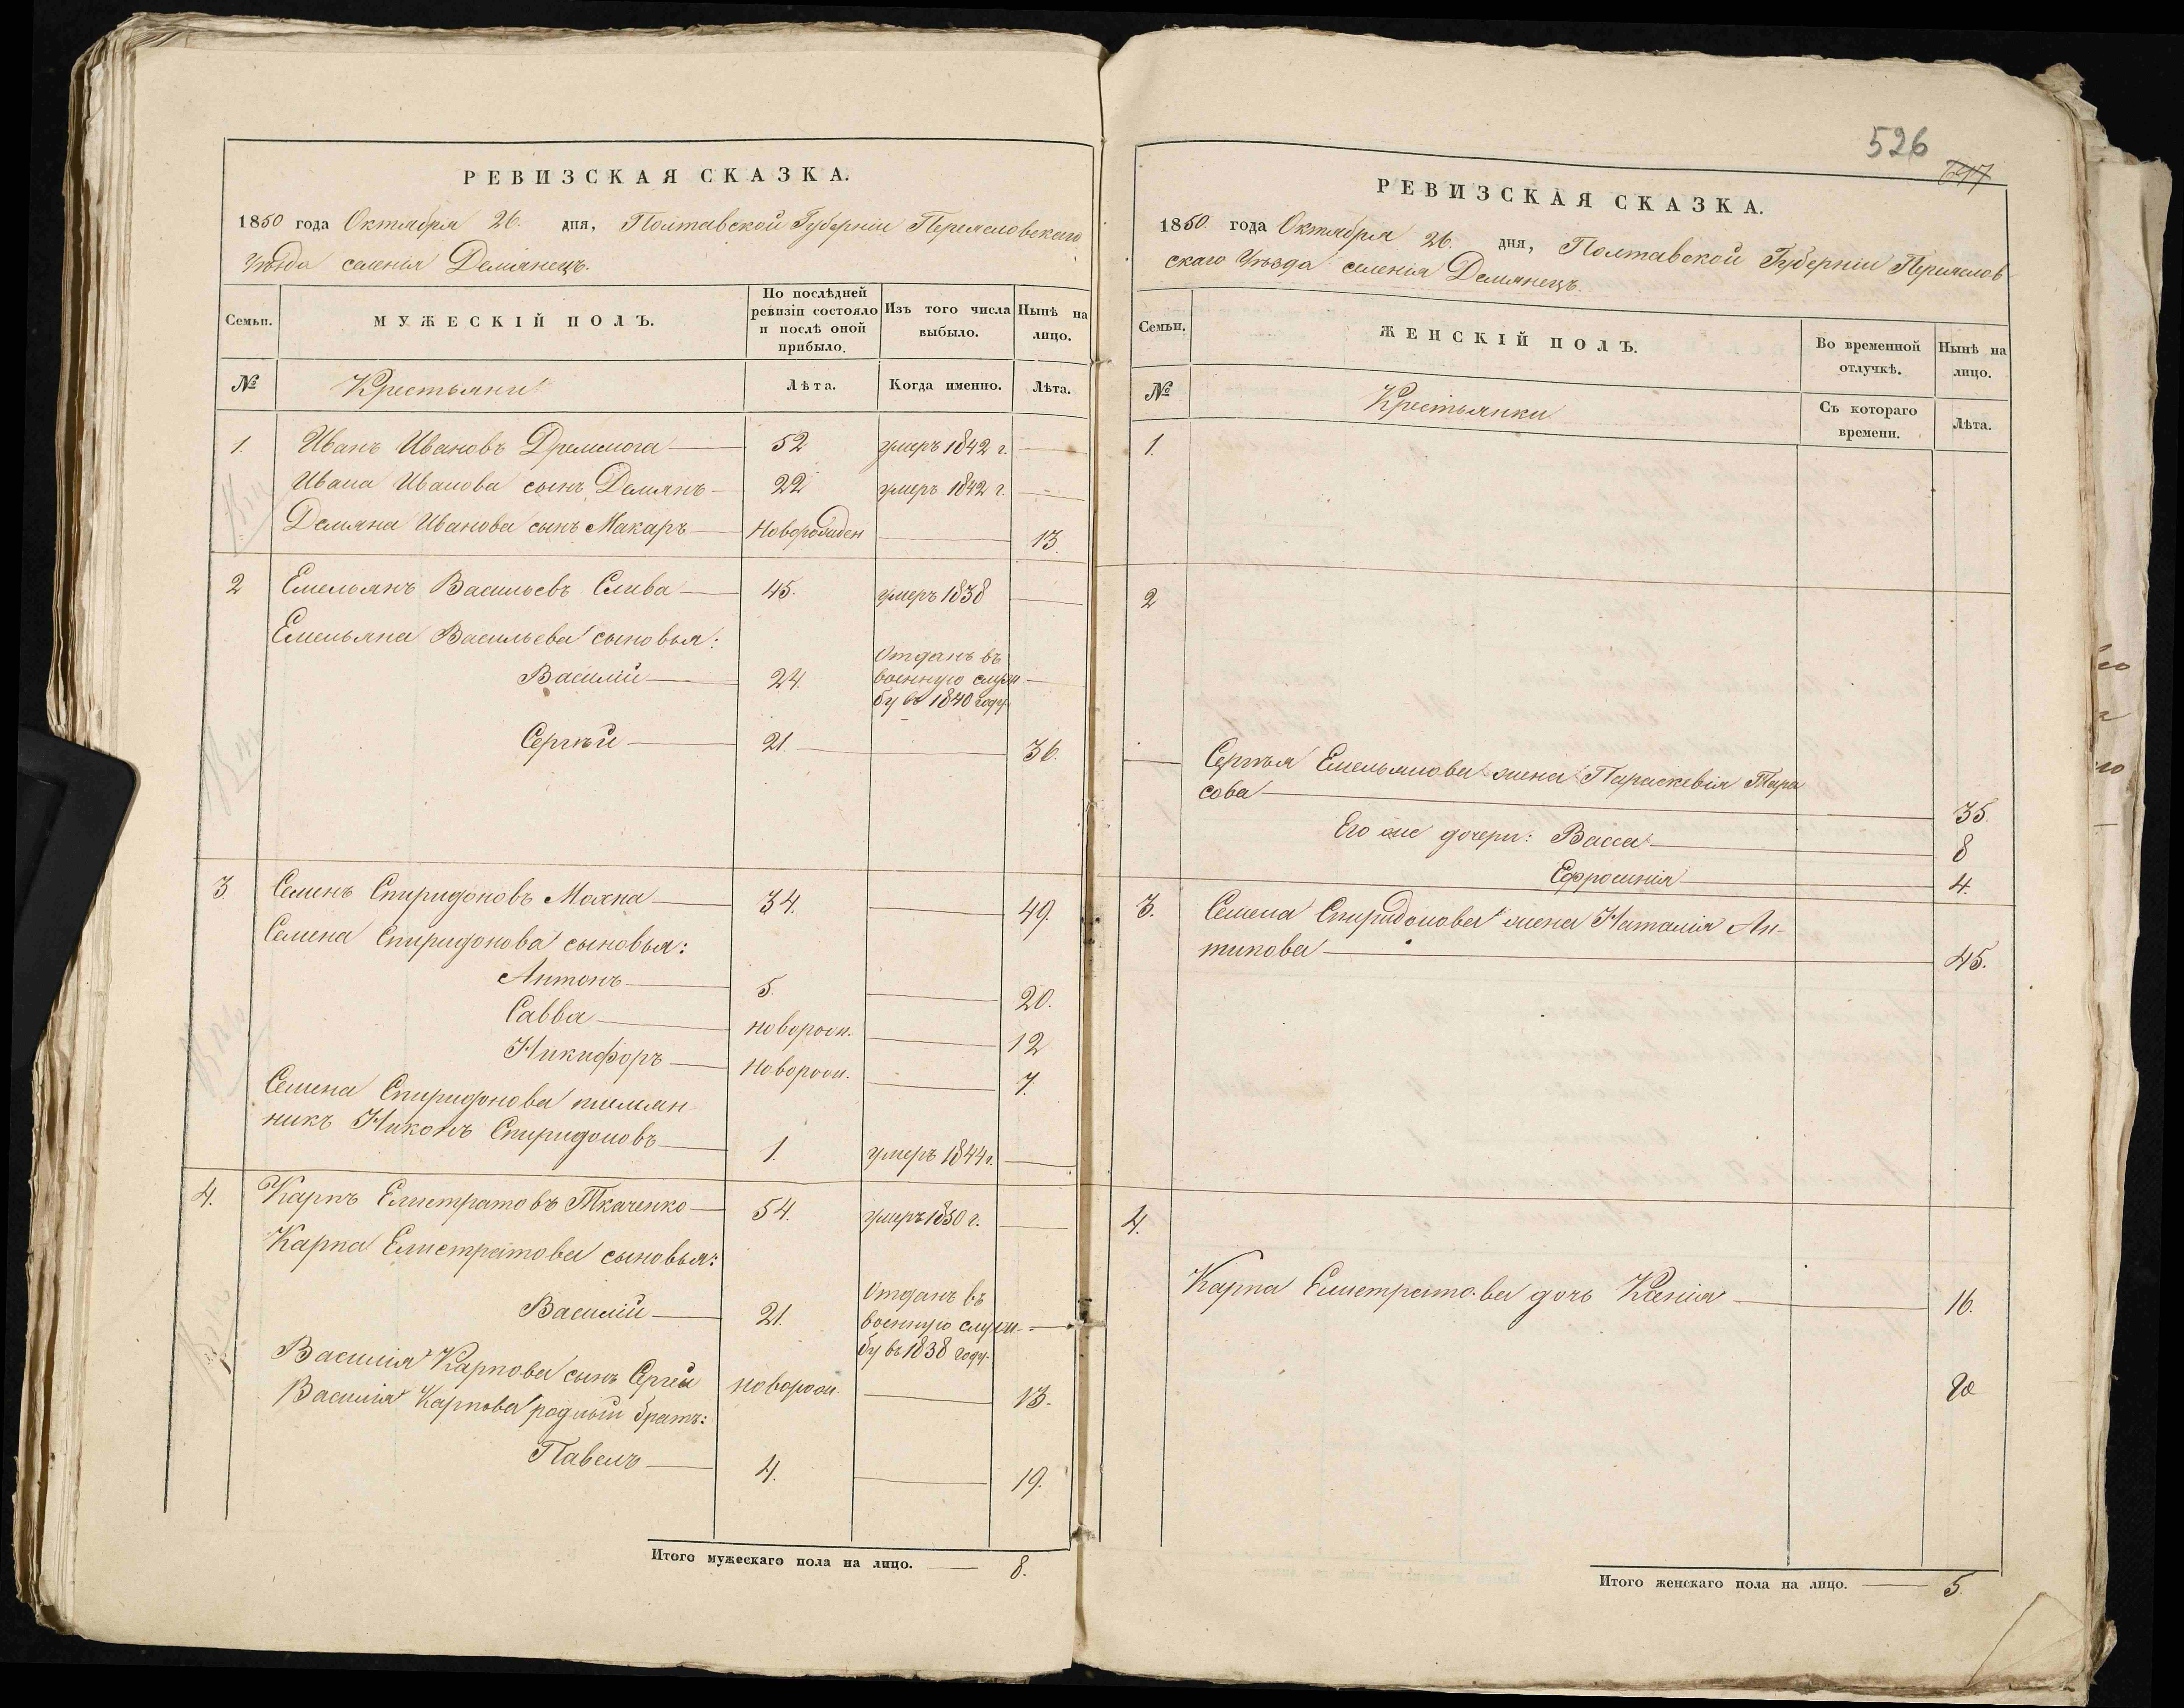 РЕВИЗСКАЯ СКАЗКА.
1850 года Октября 26. дня, Полтавской Губерніи Переясловскаго
Уѣзда селенія Демянецъ.
Семьи.
МУЖЕСКІЙ ПОЛЪ.
По послѣдней
ревизіи состояло
и послѣ оной
прибыло.
Изъ того числа
выбыло.
Нынѣ на
лицо.
№
Крестьяни
Лѣта.
Когда именно.
Лѣта.
1. Иванъ Ивановъ Дремлюга 52 умеръ 1842 г.
Ивана Иванова сынъ Демянъ 22 умеръ 1842 г.
Демяна Иванова сынъ Макаръ Новорожден 13.
2 Емельянъ Васильевъ Слива 45. умеръ 1838
Емельяна Васильева сыновья:
Отданъ въ
Василій 24. военную служ
бу въ 1840 году.
Сергѣй 21. 36.
3 Семенъ Спиридоновъ Махна 34. 49.
Семена Спиридонова сыновья:
Антонъ 5. 20.
Савва новорож. 12
Никифоръ Новорож. 7.
Семена Спиридонова племян
никъ Никонъ Спиридоновъ 1. умеръ 1844 г.
4. Карпъ Елистратовъ Ткаченко 54. умеръ 1850 г.
Карпа Елистратова сыновья:
Отданъ въ
Василій 21. военную служ-
бу въ 1838 году.
Василія Карпова сынъ Сергей новорож. 13.
Василія Карпова родный братъ:
Павелъ 4. 19.
Итого мужескаго пола на лицо. 8.
526
РЕВИЗСКАЯ СКАЗКА.
1850. года Октября 26. дня, Полтавской Губерніи Переяслов
скаго Уѣзда селенія Демянецъ.
Семьи.
ЖЕНСКІЙ ПОЛЪ.
Во временной
отлучкѣ.
Нынѣ на
лицо.
№
Крестьянки
Съ котораго
времени.
Лѣта.
1.
2
Сергѣя Емельянова жена Параскевія Тара
сова 35.
Его же дочери: Васса 8
Ефросинія 4.
3. Семена Спиридонова жена Наталія Ан-
типова 45.
4.
Карпа Елистратова дочь Ксенія 16.
Итого женскаго пола на лицо. 5.